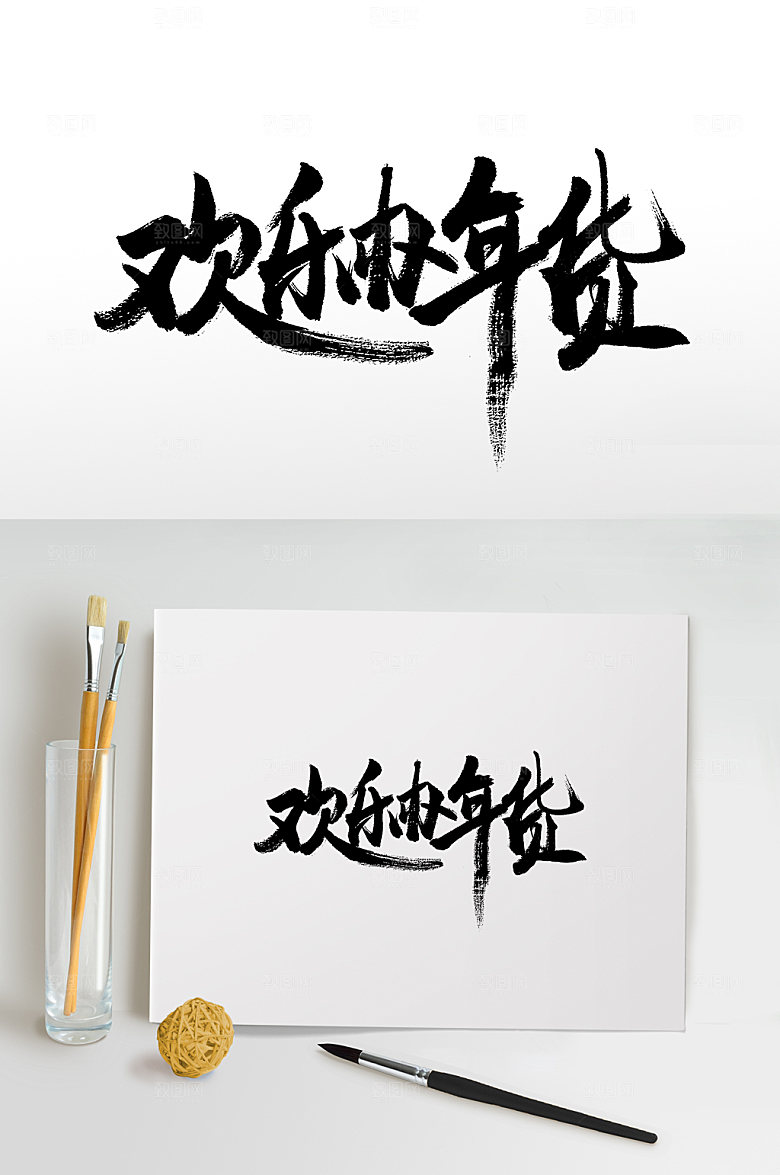 欢乐办年货
欢乐办年货